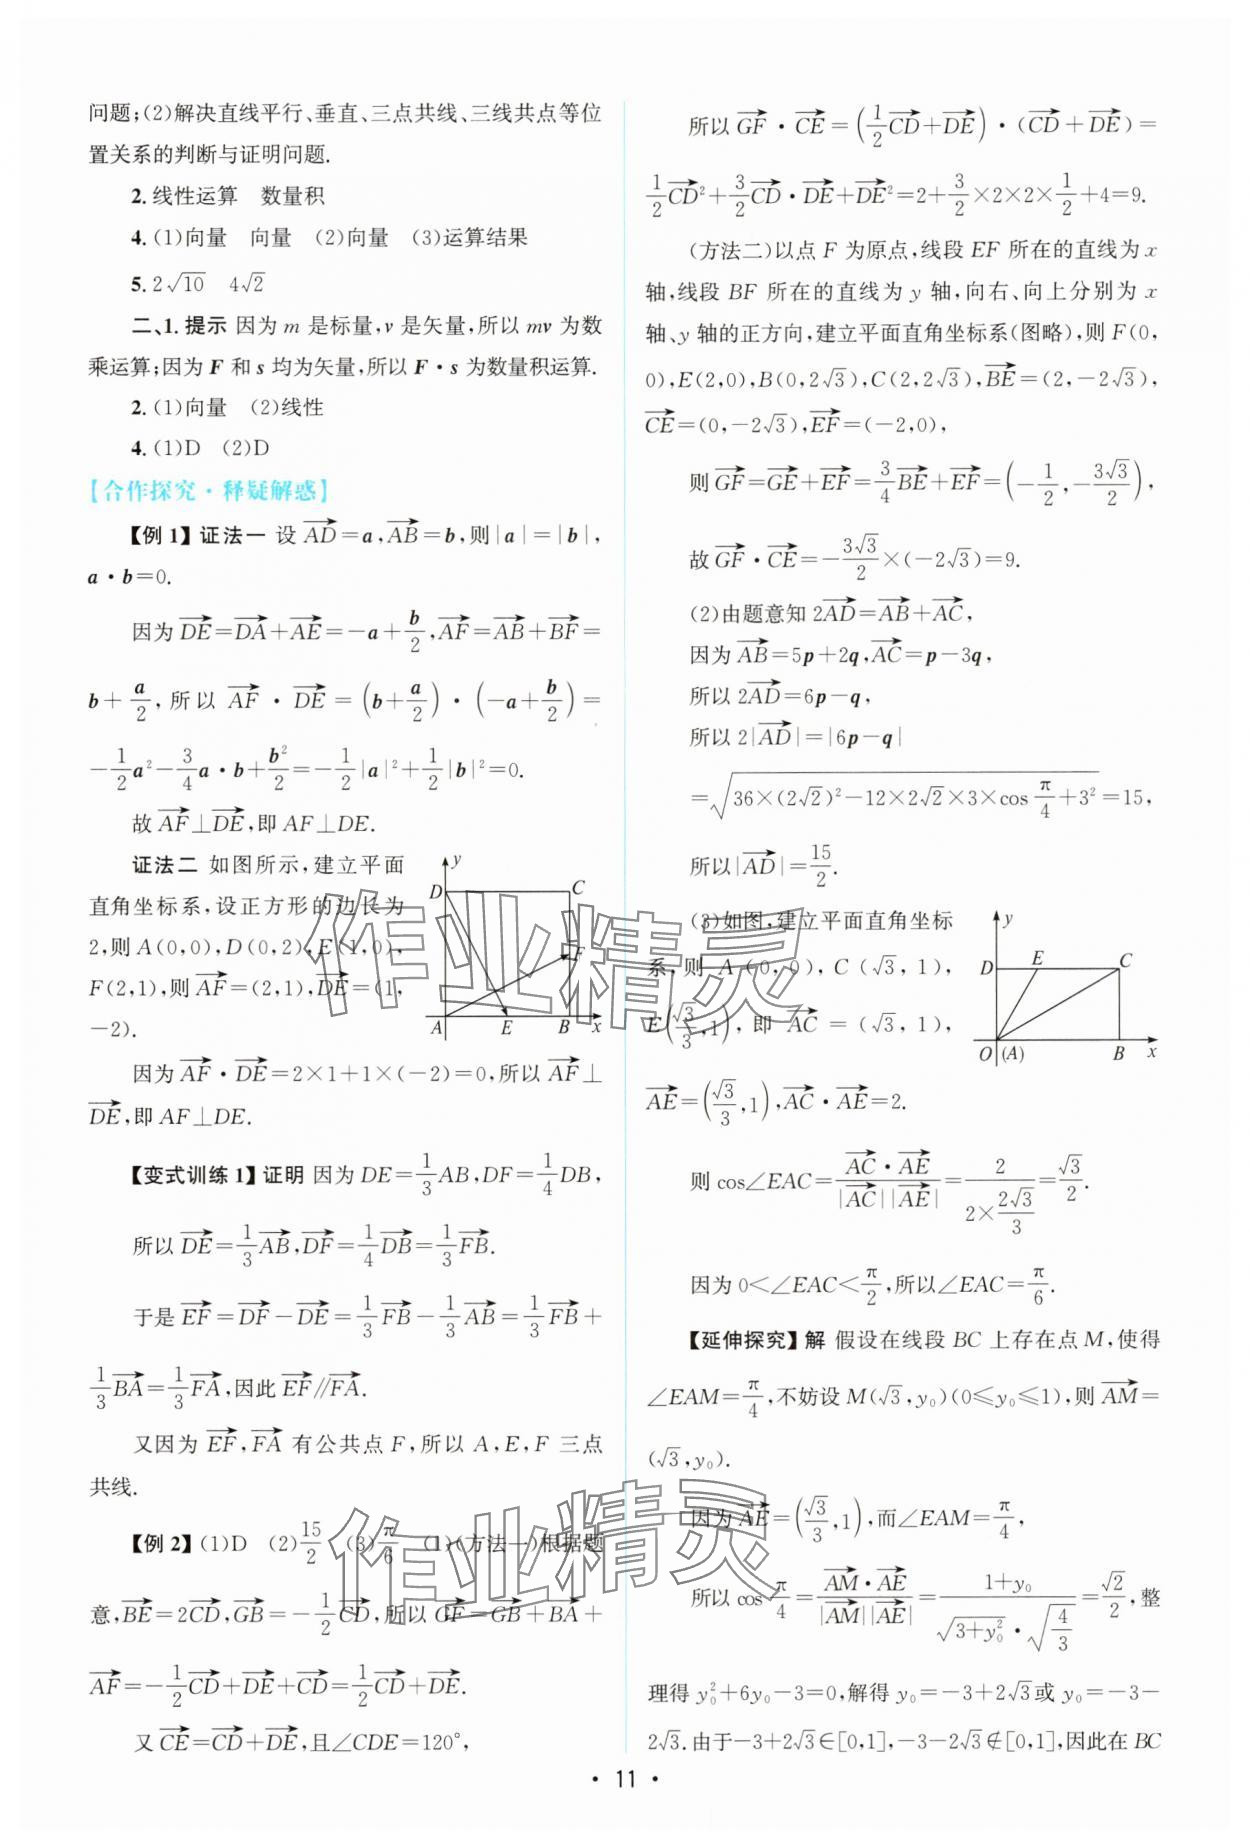 问题;(2)解决直线平行、垂直、三点共线、三线共点等位
置关系的判断与证明问题.
2. 线性运算 数量积
4. (1)向量 向量 (2)向量 (3)运算结果
5. 2√10 4√2
二、1. 提示 因为 m 是标量,v 是矢量,所以 mv 为数
乘运算;因为 F 和 s 均为矢量,所以 F·s 为数量积运算.
2. (1)向量 (2)线性
4. (1)D (2)D
【合作探究·释疑解惑】
【例 1】证法一 设 $\overrightarrow{AD}$=a,$\overrightarrow{AB}$=b,则|a|=|b|,
a·b=0.
因为 $\overrightarrow{DE}=\overrightarrow{DA}+\overrightarrow{AE}=-a+\frac{b}{2}$,$\overrightarrow{AF}=\overrightarrow{AB}+\overrightarrow{BF}=$
$b+\frac{a}{2}$,所以 $\overrightarrow{AF}·\overrightarrow{DE}=\left(b+\frac{a}{2}\right)·\left(-a+\frac{b}{2}\right)=$
$-\frac{1}{2}a^2-\frac{3}{4}a·b+\frac{b^2}{2}=-\frac{1}{2}|a|^2+\frac{1}{2}|b|^2=0.$
故 $\overrightarrow{AF}⊥\overrightarrow{DE}$,即 AF⊥DE.
证法二 如图所示,建立平面
直角坐标系,设正方形的边长为
2,则 A(0,0),D(0,2),E(1,0),
F(2,1),则 $\overrightarrow{AF}$=(2,1),$\overrightarrow{DE}$=(1,
-2).
y
D C
F
A E B x
因为 $\overrightarrow{AF}·\overrightarrow{DE}$=2×1+1×(-2)=0,所以 $\overrightarrow{AF}$⊥
$\overrightarrow{DE}$,即 AF⊥DE.
【变式训练 1】证明 因为 $DE=\frac{1}{3}AB$,$DF=\frac{1}{4}DB$,
所以 $\overrightarrow{DE}=\frac{1}{3}\overrightarrow{AB}$,$\overrightarrow{DF}=\frac{1}{4}\overrightarrow{DB}=\frac{1}{3}\overrightarrow{FB}$.
于是 $\overrightarrow{EF}=\overrightarrow{DF}-\overrightarrow{DE}=\frac{1}{3}\overrightarrow{FB}-\frac{1}{3}\overrightarrow{AB}=\frac{1}{3}\overrightarrow{FB}+$
$\frac{1}{3}\overrightarrow{BA}=\frac{1}{3}\overrightarrow{FA}$,因此 $\overrightarrow{EF}∥\overrightarrow{FA}$.
又因为 $\overrightarrow{EF}$,$\overrightarrow{FA}$ 有公共点 F,所以 A,E,F 三点
共线.
【例 2】(1)D (2)$\frac{15}{2}$ (3)$\frac{π}{6}$ (1)(方法一)根据题
意,$\overrightarrow{BE}=2\overrightarrow{CD}$,$\overrightarrow{GB}=-\frac{1}{2}\overrightarrow{CD}$,所以 $\overrightarrow{GF}=\overrightarrow{GB}+\overrightarrow{BA}+$
$\overrightarrow{AF}=-\frac{1}{2}\overrightarrow{CD}+\overrightarrow{DE}+\overrightarrow{CD}=\frac{1}{2}\overrightarrow{CD}+\overrightarrow{DE}$.
又 $\overrightarrow{CE}=\overrightarrow{CD}+\overrightarrow{DE}$,且∠CDE=120°,
所以 $\overrightarrow{GF}·\overrightarrow{CE}=\left(\frac{1}{2}\overrightarrow{CD}+\overrightarrow{DE}\right)·(\overrightarrow{CD}+\overrightarrow{DE})=$
$\frac{1}{2}\overrightarrow{CD}^2+\frac{3}{2}\overrightarrow{CD}·\overrightarrow{DE}+\overrightarrow{DE}^2=2+\frac{3}{2}×2×2×\frac{1}{2}+4=9.$
(方法二)以点 F 为原点,线段 EF 所在的直线为 x
轴,线段 BF 所在的直线为 y 轴,向右、向上分别为 x
轴、y 轴的正方向,建立平面直角坐标系(图略),则 F(0,
0),E(2,0),B(0,2√3),C(2,2√3),$\overrightarrow{BE}$=(2,-2√3),
$\overrightarrow{CE}$=(0,-2√3),$\overrightarrow{EF}$=(-2,0),
则 $\overrightarrow{GF}=\overrightarrow{GE}+\overrightarrow{EF}=\frac{3}{4}\overrightarrow{BE}+\overrightarrow{EF}=\left(-\frac{1}{2},-\frac{3\sqrt{3}}{2}\right)$,
故 $\overrightarrow{GF}·\overrightarrow{CE}=-\frac{3\sqrt{3}}{2}×(-2\sqrt{3})=9.$
(2)由题意知 $2\overrightarrow{AD}=\overrightarrow{AB}+\overrightarrow{AC}$,
因为 $\overrightarrow{AB}$=5p+2q,$\overrightarrow{AC}$=p-3q,
所以 $2\overrightarrow{AD}$=6p-q,
所以 $2|\overrightarrow{AD}|$=|6p-q|
$=\sqrt{36×(2\sqrt{2})^2-12×2\sqrt{2}×3×\cos\frac{π}{4}+3^2}=15$,
所以 $|\overrightarrow{AD}|=\frac{15}{2}$.
(3)如图,建立平面直角坐标
系,则 A(0,0),C(√3,1),
$E\left(\frac{\sqrt{3}}{3},1\right)$,即 $\overrightarrow{AC}$=(√3,1),
y
D E C
O (A) B x
$\overrightarrow{AE}=\left(\frac{\sqrt{3}}{3},1\right)$,$\overrightarrow{AC}·\overrightarrow{AE}=2.$
则 $\cos∠EAC=\frac{\overrightarrow{AC}·\overrightarrow{AE}}{|\overrightarrow{AC}||\overrightarrow{AE}|}=\frac{2}{2×\frac{2\sqrt{3}}{3}}=\frac{\sqrt{3}}{2}.$
因为 $0<∠EAC<\frac{π}{2}$,所以 $∠EAC=\frac{π}{6}$.
【延伸探究】解 假设在线段 BC 上存在点 M,使得
$∠EAM=\frac{π}{4}$,不妨设 $M(\sqrt{3},y_0)(0≤y_0≤1)$,则 $\overrightarrow{AM}=$
$(\sqrt{3},y_0)$.
因为 $\overrightarrow{AE}=\left(\frac{\sqrt{3}}{3},1\right)$,而 $∠EAM=\frac{π}{4}$,
所以 $\cos\frac{π}{4}=\frac{\overrightarrow{AM}·\overrightarrow{AE}}{|\overrightarrow{AM}||\overrightarrow{AE}|}=\frac{1+y_0}{\sqrt{3+y_0^2}·\sqrt{\frac{4}{3}}}=\frac{\sqrt{2}}{2}$,整
理得 $y_0^2+6y_0-3=0$,解得 $y_0=-3+2\sqrt{3}$ 或 $y_0=-3-$
$2\sqrt{3}$.由于 $-3+2\sqrt{3}∈[0,1]$,$-3-2\sqrt{3}∉[0,1]$,因此在 BC
· 11 ·
作业精灵
作业精灵